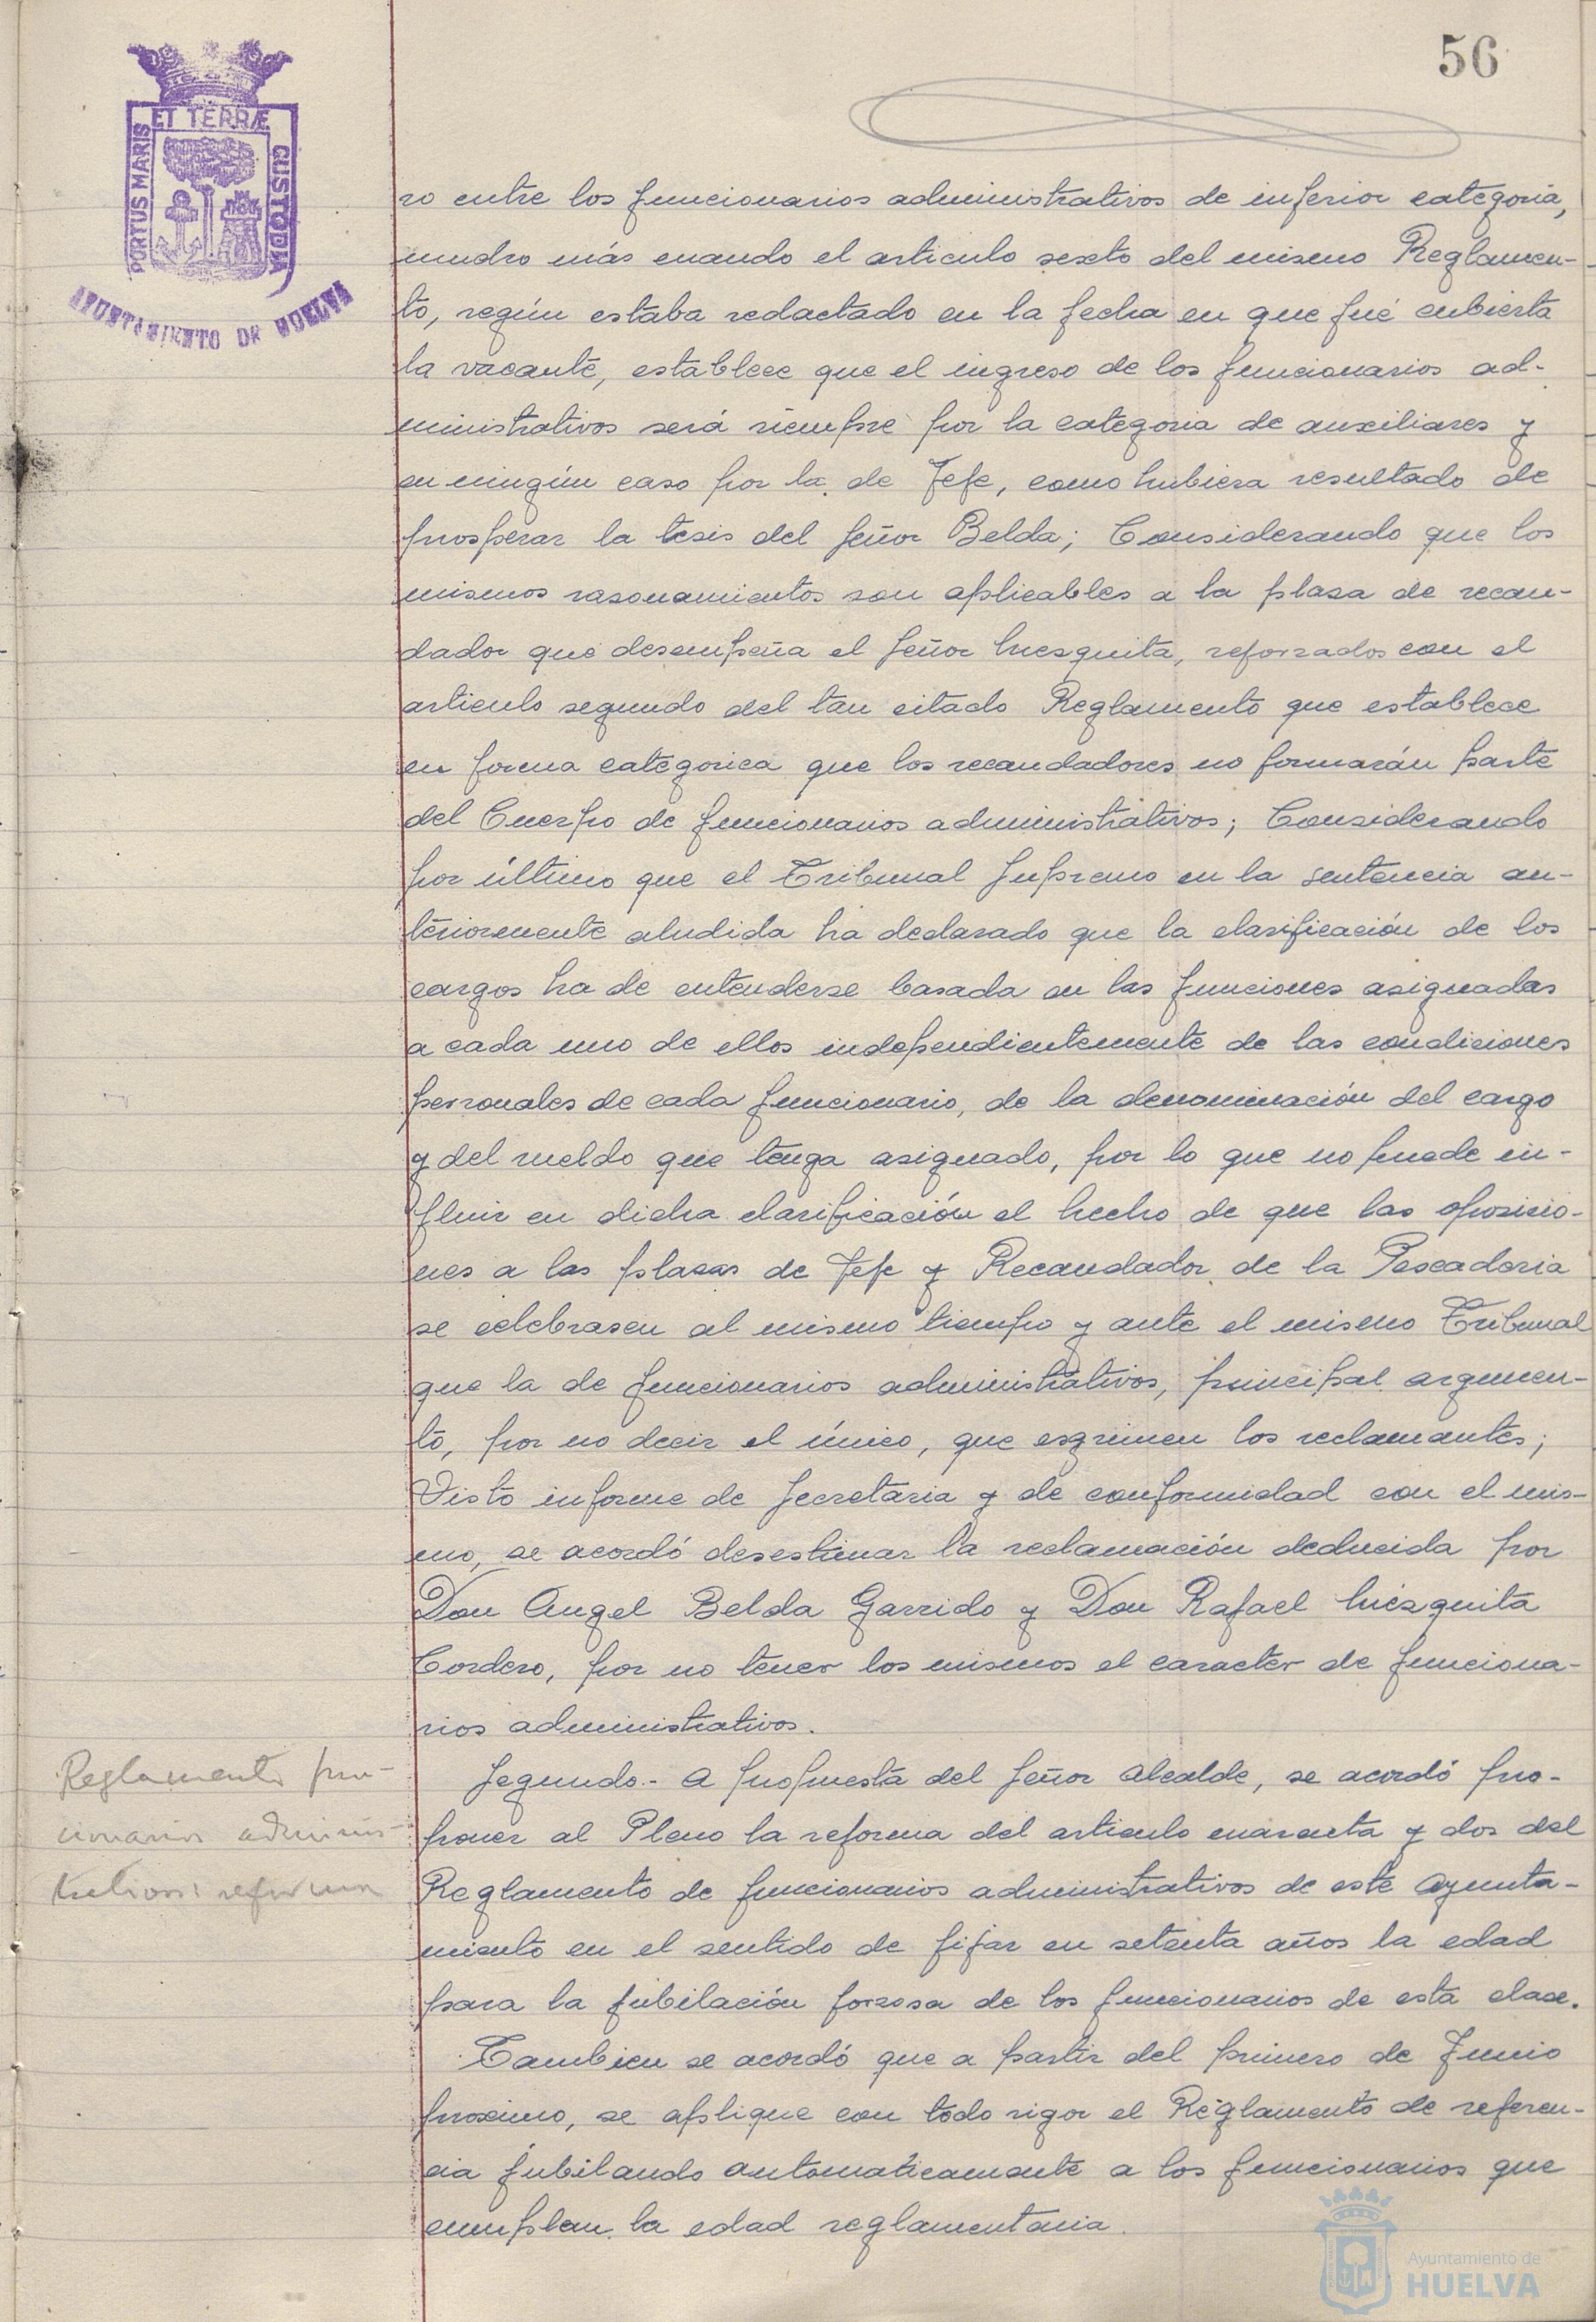 56
PORTUS MARIS ET TERRÆ CUSTODIA
AYUNTAMIENTO DE HUELVA
ro entre los funcionarios administrativos de inferior categoria,
mucho más cuando el articulo sexto del mismo Reglamen-
to, según estaba redactado en la fecha en que fué cubierta
la vacante, establece que el ingreso de los funcionarios ad-
ministrativos será siempre por la categoria de auxiliares y
en ningún caso por la de Jefe, como hubiera resultado de
prosperar la tesis del Señor Belda; Considerando que los
mismos rasonamientos son aplicables a la plasa de recau-
dador que desempeña el Señor Mezquita, reforzados con el
articulo segundo del tan citado Reglamento que establece
en forma categorica que los recaudadores no formarán parte
del Cuerpo de funcionarios administrativos; Considerando
por último que el Tribunal Supremo en la sentencia an-
teriormente aludida ha declarado que la clasificación de los
cargos ha de entenderse basada en las funciones asignadas
a cada uno de ellos independientemente de las condiciones
personales de cada funcionario, de la denominación del cargo
y del sueldo que tenga asignado, por lo que no puede in-
fluir en dicha clasificación el hecho de que las oposicio-
nes a las plasas de Jefe y Recaudador de la Pescaderia
se celebrasen al mismo tiempo y ante el mismo Tribunal
que la de funcionarios administrativos, principal argumen-
to, por no decir el único, que esgrimen los reclamantes;
Visto informe de Secretaria y de conformidad con el mis-
mo, se acordó desestimar la reclamación deducida por
Don Angel Belda Garrido y Don Rafael Mézquita
Cordero, por no tener los mismos el caracter de funciona-
rios administrativos.
Reglamento fun-
cionarios adminis-
trativos: reforma
Segundo.- A propuesta del Señor Alcalde, se acordó pro-
poner al Pleno la reforma del articulo cuarenta y dos del
Reglamento de funcionarios administrativos de este Ayunta-
miento en el sentido de fijar en setenta años la edad
para la jubilación forzosa de los funcionarios de esta clase.
Tambien se acordó que a partir del primero de Junio
proximo, se aplique con todo rigor el Reglamento de referen-
cia jubilando automaticamente a los funcionarios que
cumplan la edad reglamentaria.
Ayuntamiento de
HUELVA